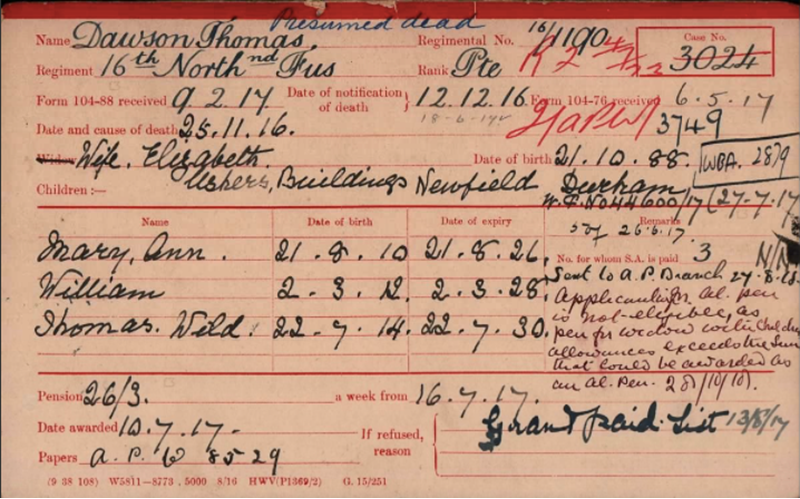 Presumed dead
Name Dawson Thomas. Regimental No. 16/1190 Case No. 3024
Regiment 16th North nd Fus Rank Pte
Form 104-88 received 9.2.17 Date of notification of death } 12.12.16. Form 104-76 received 6.5.17
18-6-17
Date and cause of death 25.11.16. 3749
Widow Wife. Elizabeth. Date of birth 21.10.88. WBA. 2879
Ushers, Buildings Newfield Durham,
Children:— W.F. No 44600/17 (27-7-17
Name Date of birth Date of expiry Remarks
26.6.17.
Mary, Ann. 21.8.10 21.8.26. No. for whom S.A. is paid 3 N/N
William 2.3.12. 2.3.28. Sent to A.P. Branch 27.8.18.
Thomas. Wild. 22.7.14. 22.7.30. Applicant for al. pen
is not eligible, as
pen for widow with children
allowances exceeds the sum
that could be awarded as
an al. Pen. 28/10/18.
Pension 26/3. a week from 16.7.17.
Date awarded 10.7.17.- If refused, reason Grant paid. List 13/8/17
Papers a.P.W 8529
(9 38 108) W5811—8773 . 5000 8/16 HWV(P1369/2) G. 15/251